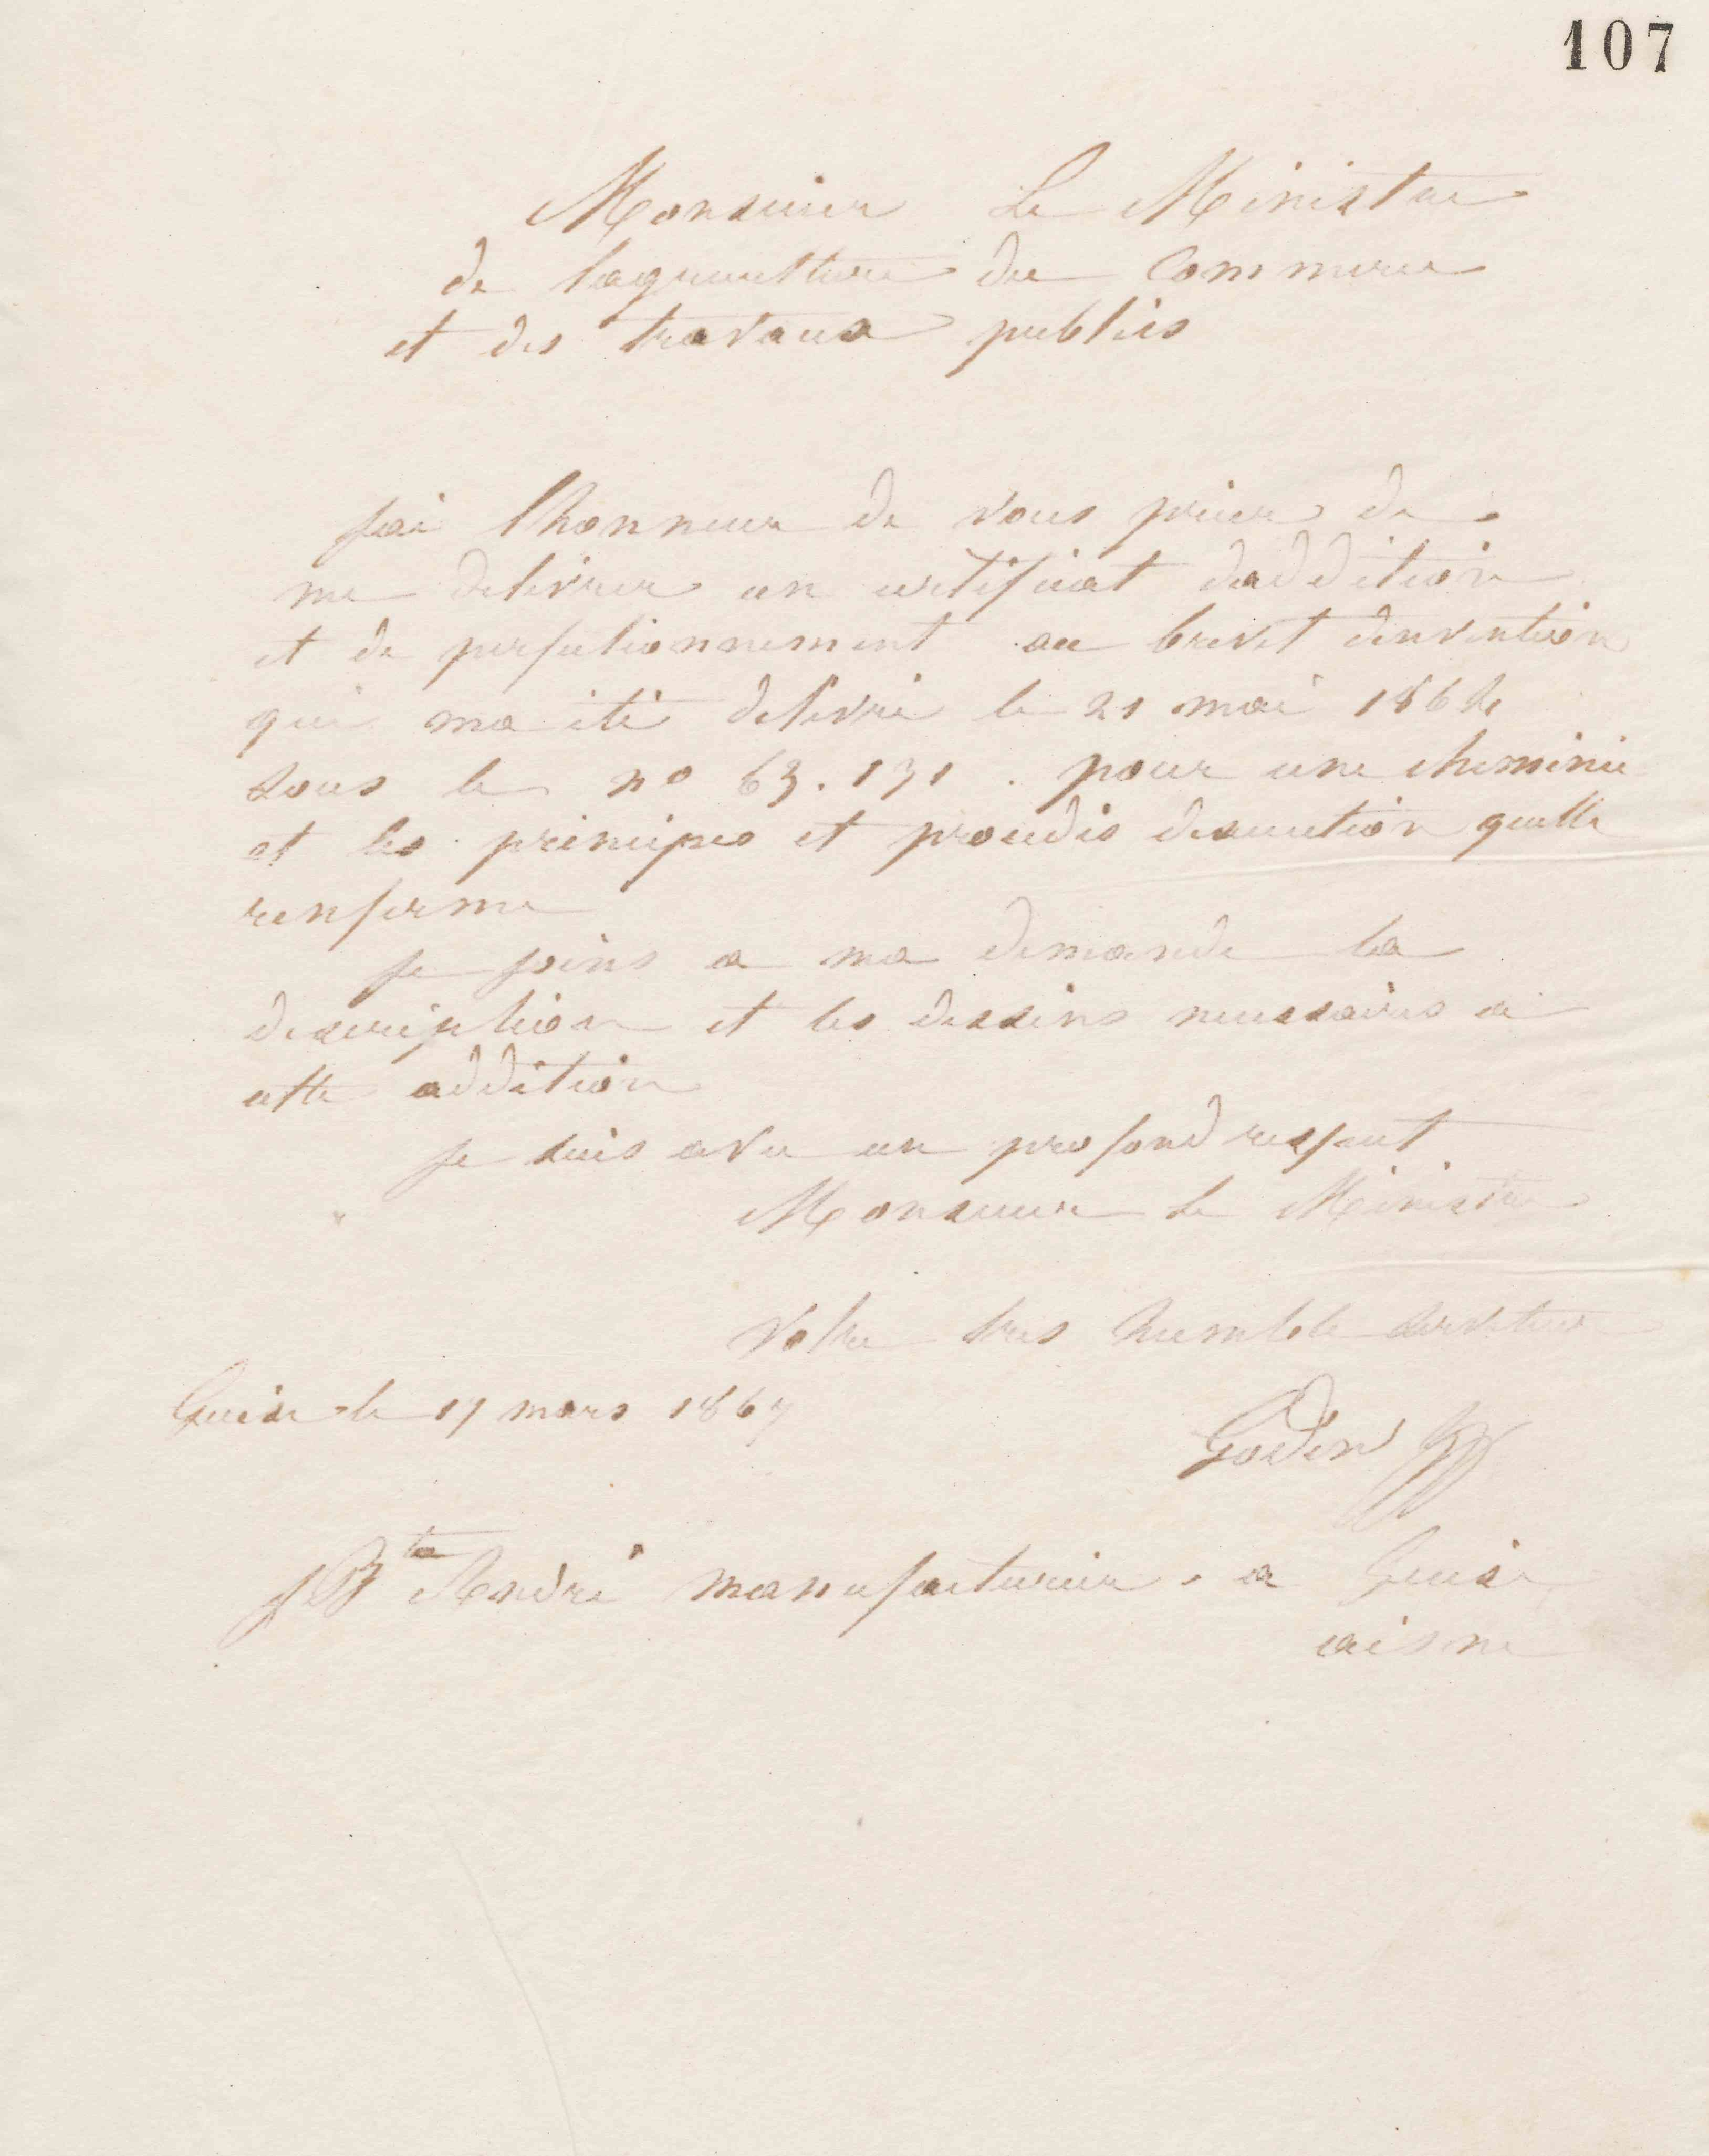 107
Monsieur Le Ministre
de lagriculture du Commerce
et des travaux publics
jai lhonneur de vous prier de
me delivrer un certificat daddition
et de perfectionnement au brevet dinvention
qui ma été delivré le 21 mai 1864
sous le no 63.131. pour une cheminée
et les principes et procedés dexecution quelle
renferme
je joins a ma demande la
description et les dessins necessaires a
cette addition
je suis avec un profond respect
Monsieur le Ministre
Votre tres humble serviteur
Guise le 17 mars 1867
Godin
JBte André manufacturier a Guise
aisne